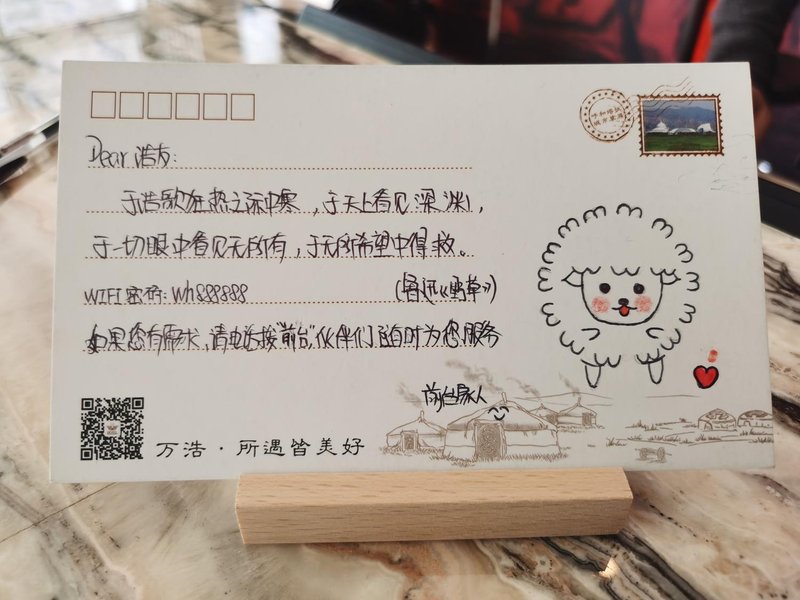 Dear 浩友：
于浩歌狂热之际中寒，于天上看见深渊，
于一切眼中看见无所有，于无所希望中得救。
WIFI密码：Wh888888 （鲁迅《野草》）
如果您有需求，请电话接“前台”，伙伴们随时为您服务
前台家人
万浩·所遇皆美好